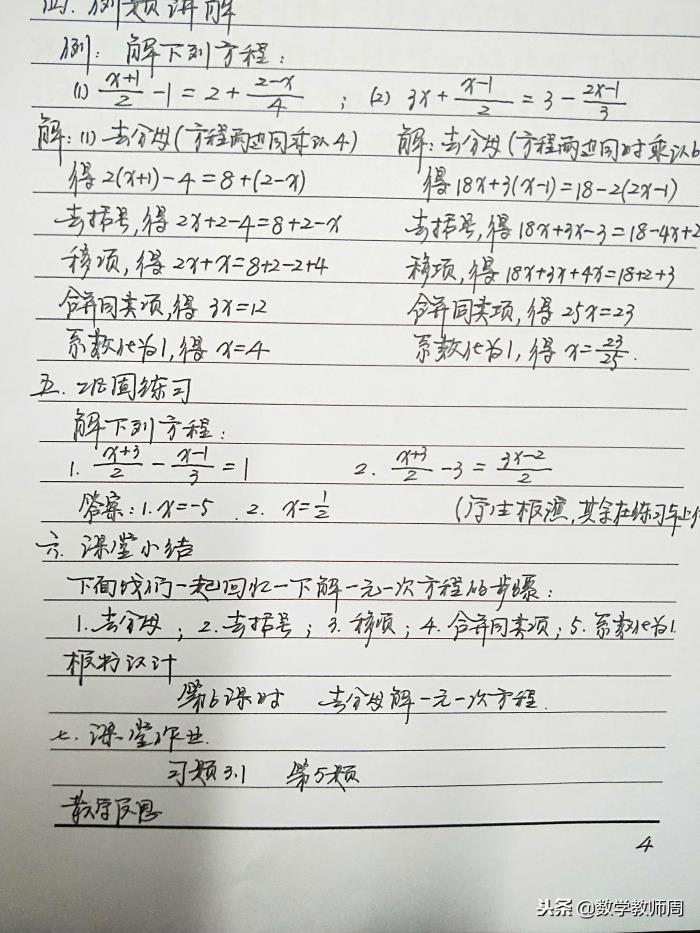 四. 例题讲解
例: 解下列方程:
(1) (x+1)/2 - 1 = 2 + (2-x)/4 ; (2) 3x + (x-1)/2 = 3 - (2x-1)/3
解: (1) 去分母(方程两边同乘以4) 解: 去分母(方程两边同时乘以6
得 2(x+1)-4=8+(2-x) 得 18x+3(x-1)=18-2(2x-1)
去括号,得 2x+2-4=8+2-x 去括号,得 18x+3x-3=18-4x+2
移项,得 2x+x=8+2-2+4 移项,得 18x+3x+4x=18+2+3
合并同类项,得 3x=12 合并同类项,得 25x=23
系数化为1,得 x=4 系数化为1,得 x=23/25.
五. 巩固练习
解下列方程:
1. (x+3)/2 - (x-1)/3 = 1 2. (x+3)/2 - 3 = (3x-2)/2
答案: 1. x=-5 2. x=1/2 (学生板演,其余在练习本上
六. 课堂小结
下面我们一起回忆一下解一元一次方程的步骤:
1. 去分母; 2. 去括号; 3. 移项; 4. 合并同类项; 5. 系数化为1.
板书设计
第6课时 去分母解一元一次方程.
七. 课堂作业.
习题3.1 第5题
教学反思
4
头条 @数学教师周